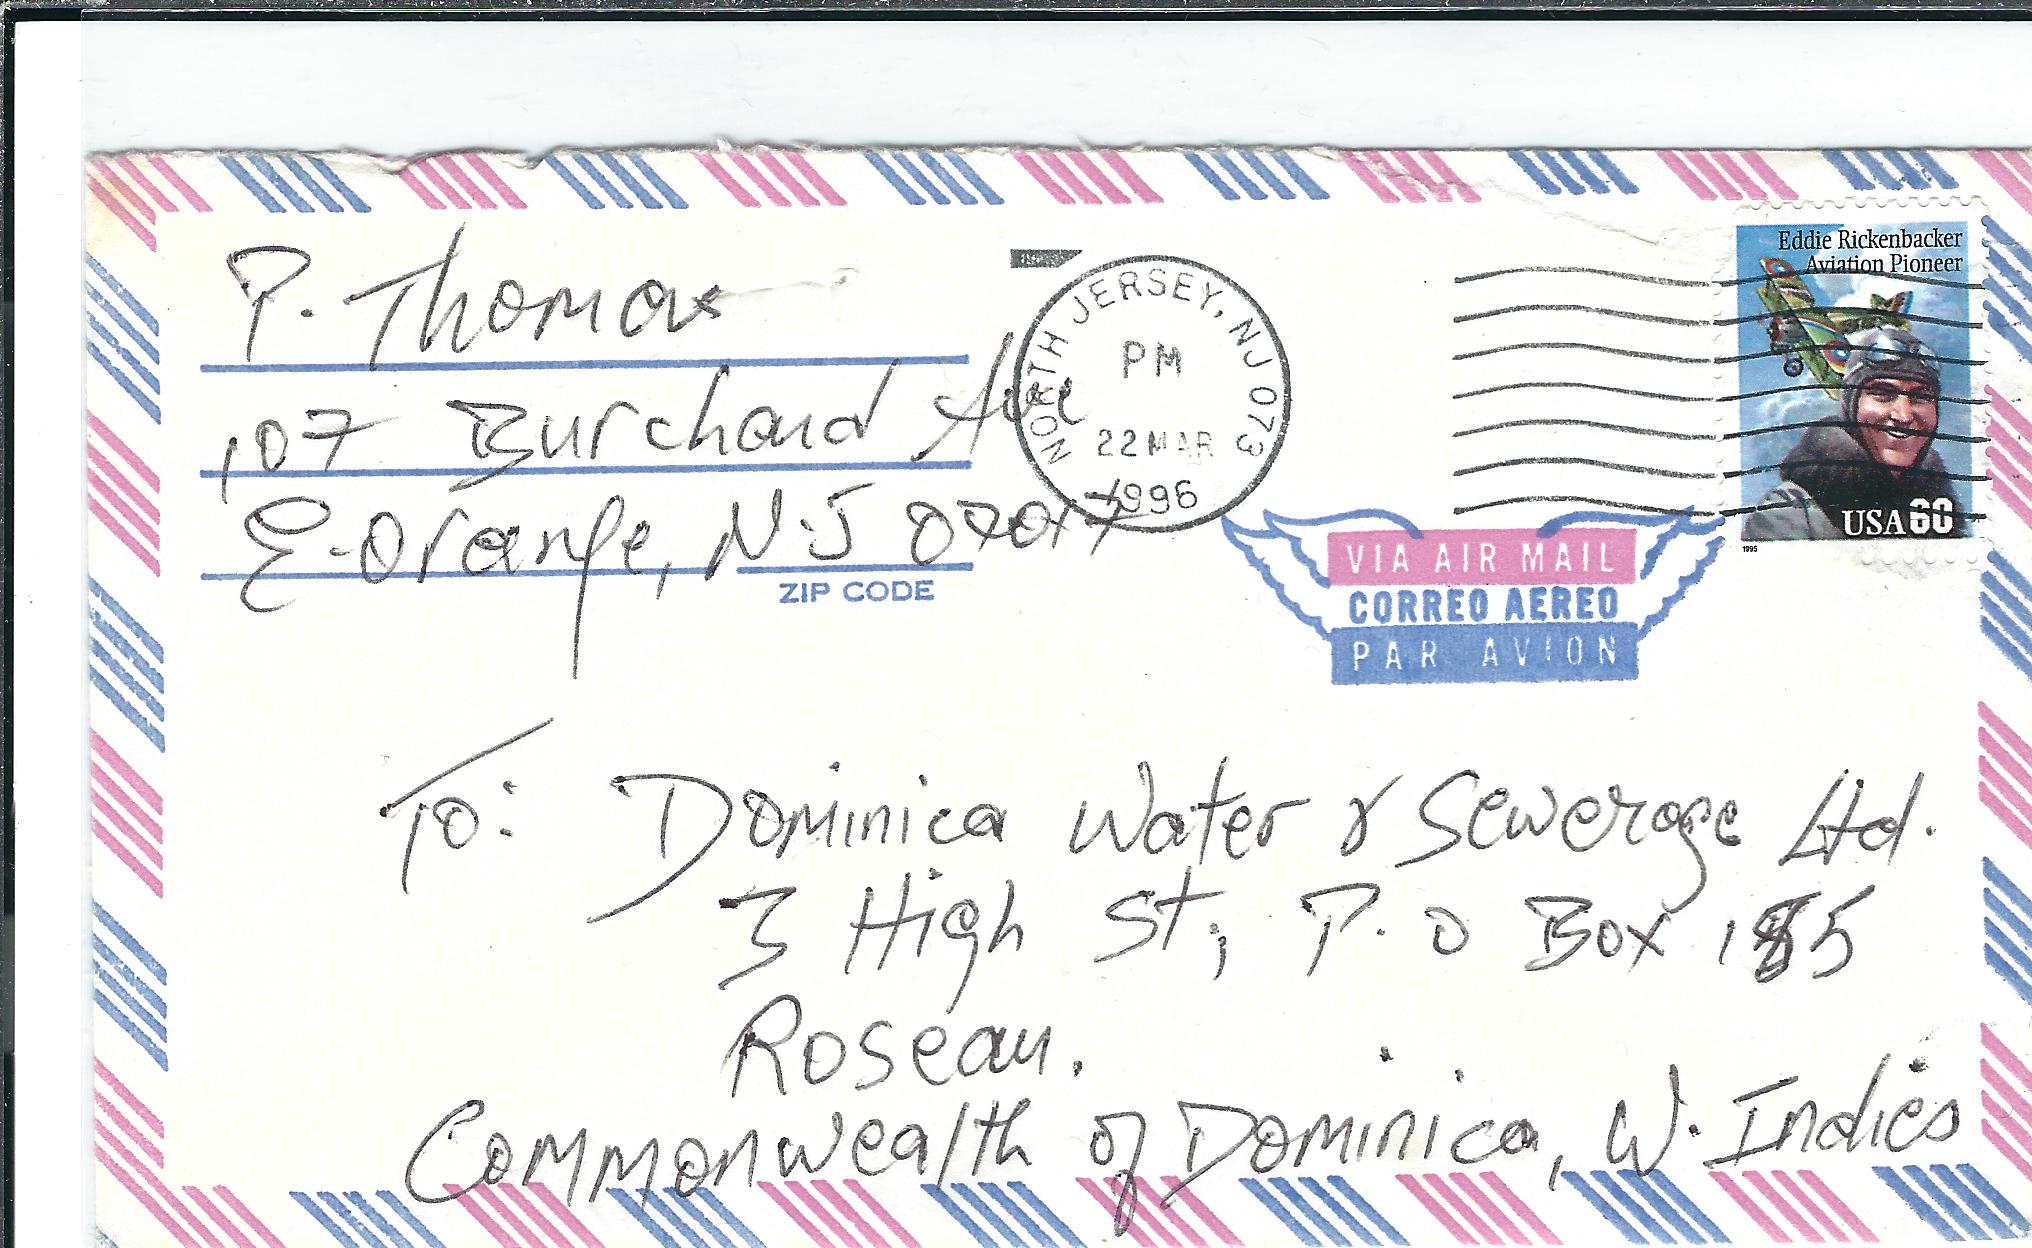 P. Thomas
107 Burchard Ave
E. Orange, N.J 07017
ZIP CODE
NORTH JERSEY, NJ 073
PM
22 MAR
1996
Eddie Rickenbacker
Aviation Pioneer
USA 60
1995
VIA AIR MAIL
CORREO AEREO
PAR AVION
To: Dominica Water & Sewerage Ltd.
3 High St, P.O Box 185
Roseau.
Commonwealth of Dominica, W. Indies